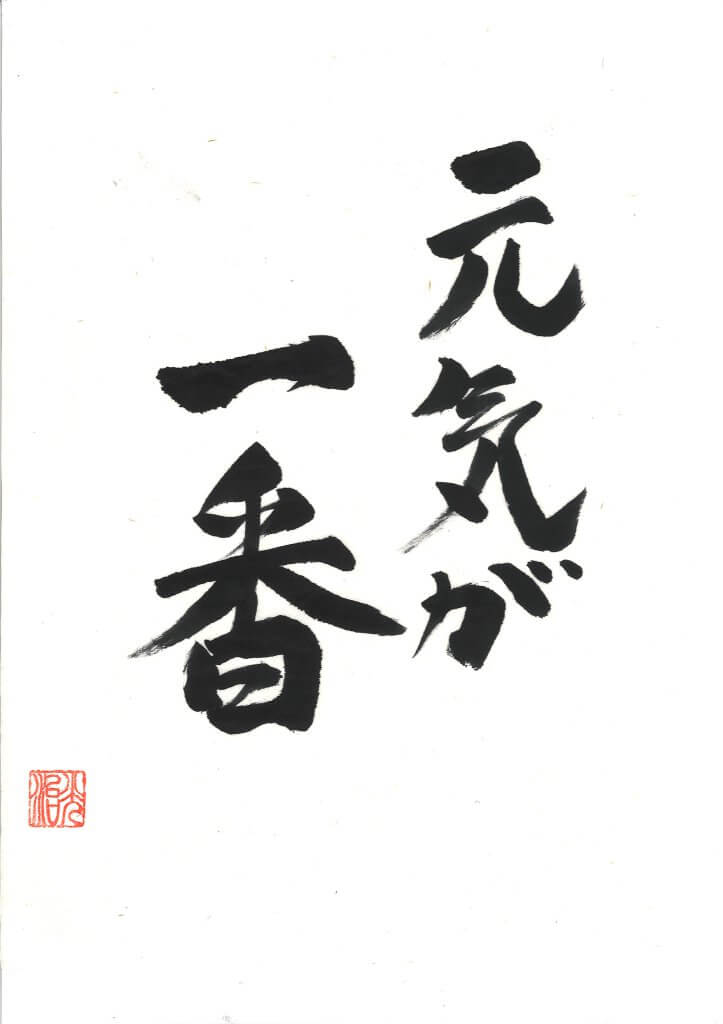 元気が
一番